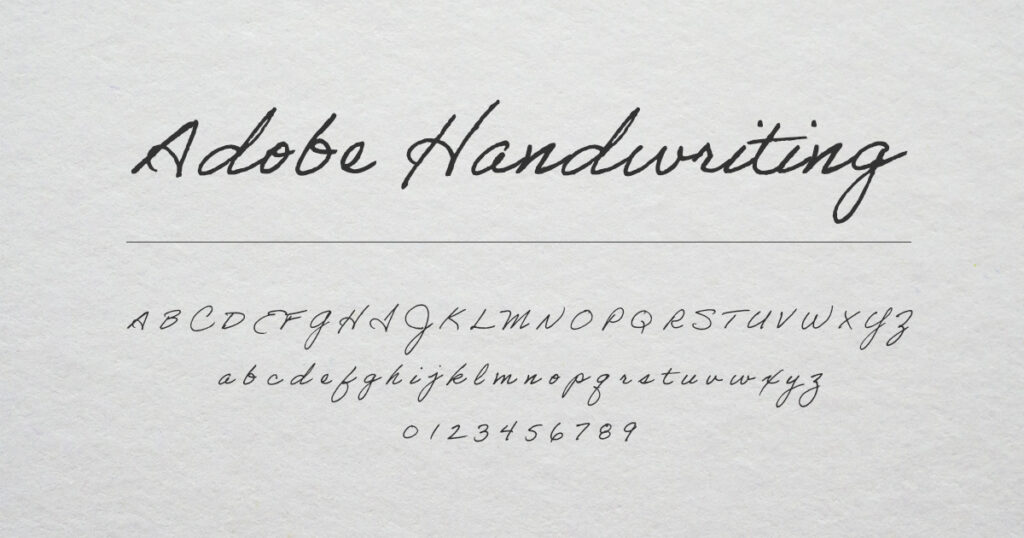 Adobe Handwriting
A B C D E F G H I J K L M N O P Q R S T U V W X Y Z
a b c d e f g h i j k l m n o p q r s t u v w x y z
0 1 2 3 4 5 6 7 8 9